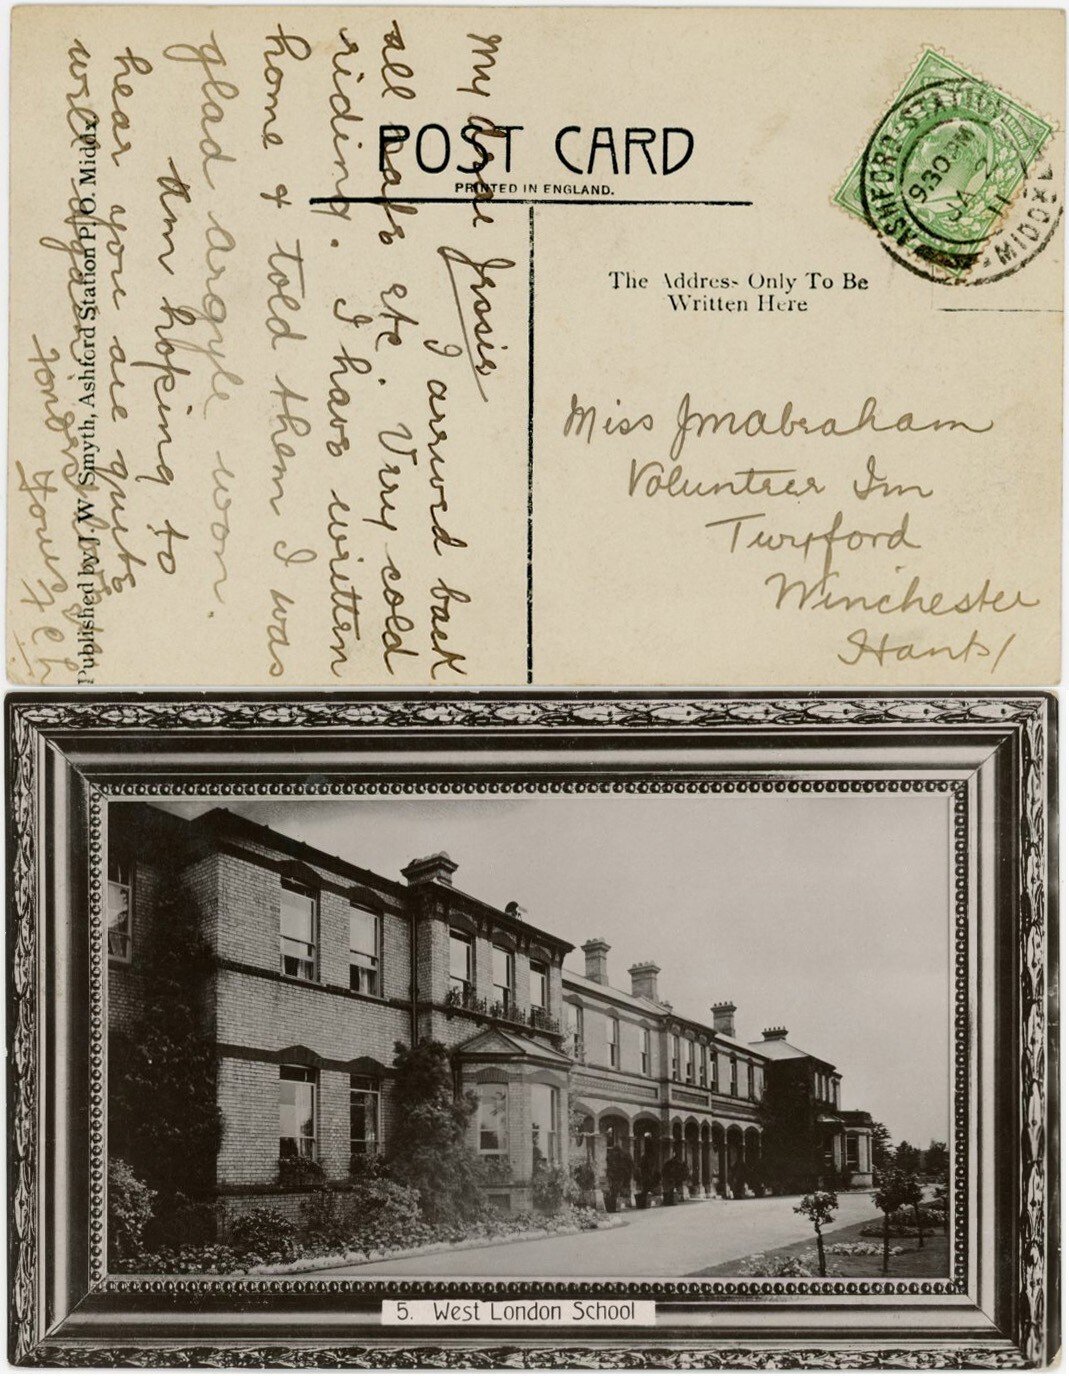 My dear Jessie
I arrived back
all safe etc. Very cold
riding. I have written
home & told them I was
glad argyle won.
Am hoping to
hear you are quite
well again
Fondest love
Yours F
POST CARD
PRINTED IN ENGLAND.
The Address Only To Be
Written Here
ASHFORD-STATION
9.30 PM
JA 2
11
MIDDX
Miss J M Abraham
Volunteer Inn
Twyford
Winchester
Hants/
Published by J. W. Smyth, Ashford Station P.O. Middx
5. West London School